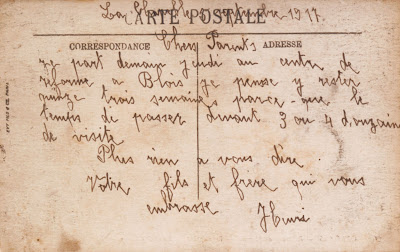 La octobre 1917
CARTE POSTALE
CORRESPONDANCE Chers Parents ADRESSE
je part demain jeudi au centre de
réforme a Blois je pense y rester
trois semaines parce que le
temps de passer devant 3 ou 4 douzaine
de visite
Plus rien a vous dire.
Votre fils et frère qui vous
embrasse Henri